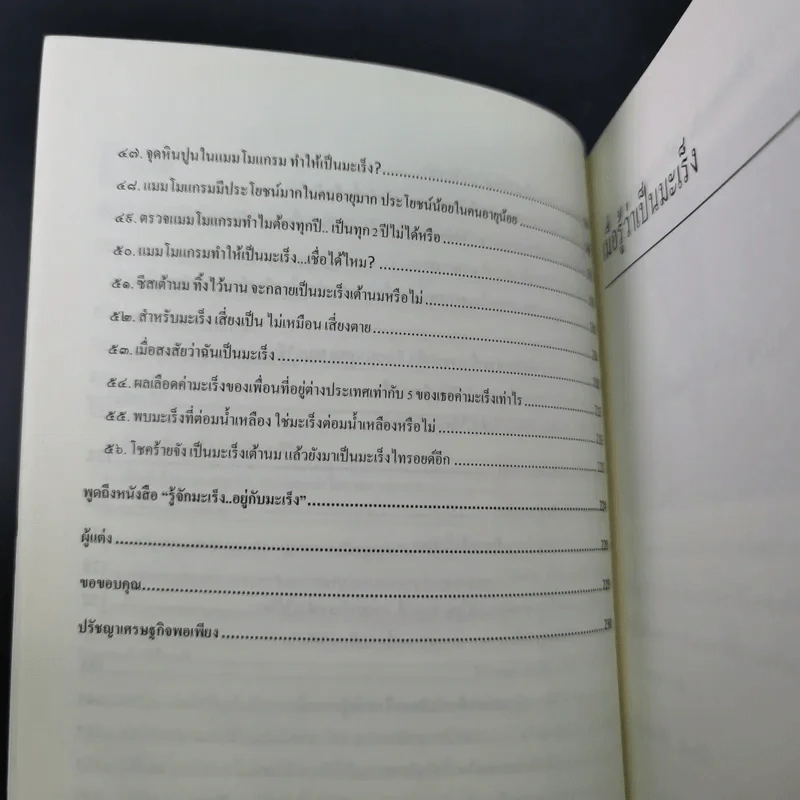 ๔๗. จุดหินปูนในแมมโมแกรม ทำให้เป็นมะเร็ง?
๔๘. แมมโมแกรมมีประโยชน์มากในคนอายุมาก ประโยชน์น้อยในคนอายุน้อย
๔๙. ตรวจแมมโมแกรมทำไมต้องทุกปี.. เป็นทุก 2 ปีไม่ได้หรือ
๕๐. แมมโมแกรมทำให้เป็นมะเร็ง...เชื่อได้ไหม?
๕๑. ซีสเต้านม ทิ้งไว้นาน จะกลายเป็นมะเร็งเต้านมหรือไม่
๕๒. สำหรับมะเร็ง เสี่ยงเป็น ไม่เหมือน เสี่ยงตาย
๕๓. เมื่อสงสัยว่าฉันเป็นมะเร็ง
๕๔. ผลเลือดค่ามะเร็งของเพื่อนที่อยู่ต่างประเทศเท่ากับ 5 ของเธอค่ามะเร็งเท่าไร
๕๕. พบมะเร็งที่ต่อมน้ำเหลือง ใช่มะเร็งต่อมน้ำเหลืองหรือไม่
๕๖. โชคร้ายจัง เป็นมะเร็งเต้านม แล้วยังมาเป็นมะเร็งไทรอยด์อีก
พูดถึงหนังสือ “รู้จักมะเร็ง..อยู่กับมะเร็ง”
ผู้แต่ง
ขอขอบคุณ
ปรัชญาเศรษฐกิจพอเพียง
เมื่อรู้ว่าเป็นมะเร็ง